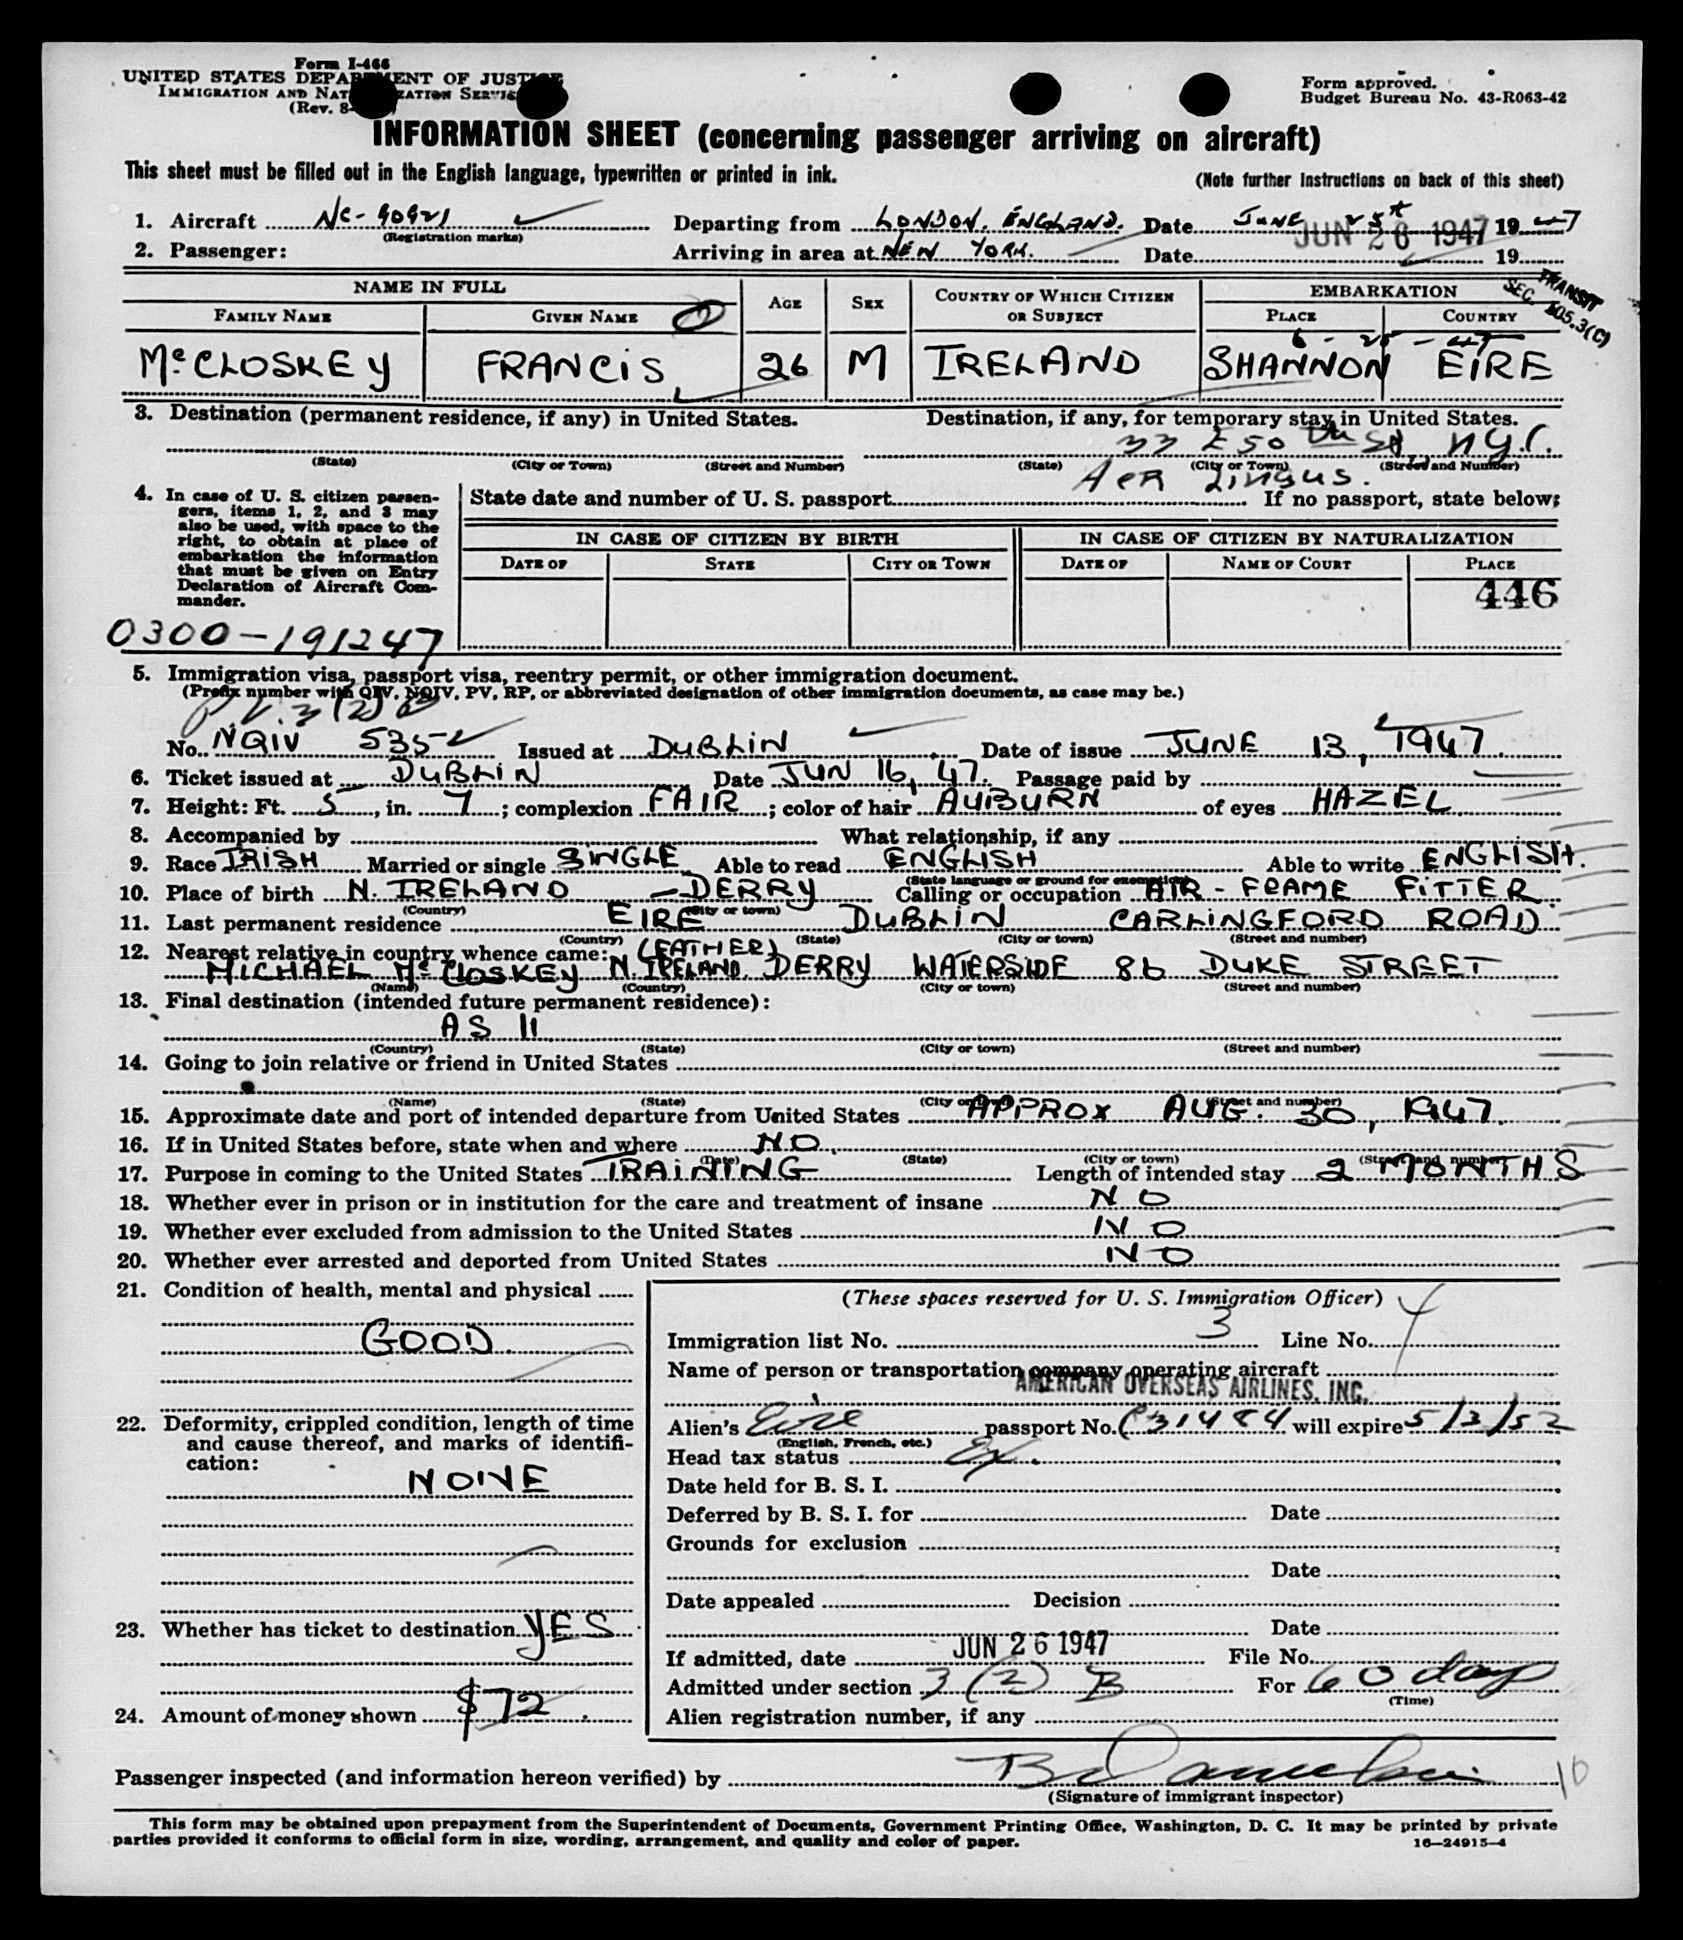 Form I-466
UNITED STATES DEPARTMENT OF JUSTICE
IMMIGRATION AND NATURALIZATION SERVICE
(Rev. 8-
Form approved.
Budget Bureau No. 43-R063-42
INFORMATION SHEET (concerning passenger arriving on aircraft)
This sheet must be filled out in the English language, typewritten or printed in ink.
(Note further instructions on back of this sheet)
1. Aircraft NC-90921 Departing from LONDON, ENGLAND. Date JUNE 25th 1947
(Registration marks)
JUN 26 1947
2. Passenger: Arriving in area at NEW YORK. Date 19
TRANSIT
SEC. 105.3(C)
NAME IN FULL AGE SEX COUNTRY OF WHICH CITIZEN OR SUBJECT EMBARKATION
FAMILY NAME GIVEN NAME PLACE COUNTRY
6-25-47
McCLOSKEY FRANCIS 26 M IRELAND SHANNON EIRE
3. Destination (permanent residence, if any) in United States. Destination, if any, for temporary stay in United States.
33 E 50 th St, N.Y.C.
(State) (City or Town) (Street and Number) (State) (City or Town) (Street and Number)
Aer Lingus.
4. In case of U. S. citizen passen-
gers, items 1, 2, and 3 may
also be used, with space to the
right, to obtain at place of
embarkation the information
that must be given on Entry
Declaration of Aircraft Com-
mander.
State date and number of U. S. passport If no passport, state below:
IN CASE OF CITIZEN BY BIRTH IN CASE OF CITIZEN BY NATURALIZATION
DATE OF STATE CITY OR TOWN DATE OF NAME OF COURT PLACE
446
0300-191247
5. Immigration visa, passport visa, reentry permit, or other immigration document.
(Prefix number with QIV, NQIV, PV, RP, or abbreviated designation of other immigration documents, as case may be.)
P.V. 3(2) B
No. NQIV 535 Issued at DUBLIN Date of issue JUNE 13, 1947.
6. Ticket issued at DUBLIN Date JUN 16, 47. Passage paid by
7. Height: Ft. 5, in. 7; complexion FAIR; color of hair AUBURN of eyes HAZEL
8. Accompanied by What relationship, if any
9. Race IRISH Married or single SINGLE Able to read ENGLISH Able to write ENGLISH.
(State language or ground for exemption)
10. Place of birth N. IRELAND - DERRY Calling or occupation AIR-FRAME FITTER
(Country) (City or town)
11. Last permanent residence EIRE DUBLIN CARLINGFORD ROAD
(Country) (State) (City or town) (Street and number)
12. Nearest relative in country whence came: (FATHER)
MICHAEL McCLOSKEY N. IRELAND DERRY WATERSIDE 86 DUKE STREET
(Name) (Country) (City or town) (Street and number)
13. Final destination (intended future permanent residence):
AS 11
(Country) (State) (City or town) (Street and number)
14. Going to join relative or friend in United States
(Name) (State) (City or town) (Street and number)
15. Approximate date and port of intended departure from United States APPROX AUG. 30, 1947.
16. If in United States before, state when and where NO
(Date) (State) (City or town) (Street and number)
17. Purpose in coming to the United States TRAINING Length of intended stay 2 MONTHS
18. Whether ever in prison or in institution for the care and treatment of insane NO
19. Whether ever excluded from admission to the United States NO
20. Whether ever arrested and deported from United States NO
21. Condition of health, mental and physical
GOOD
22. Deformity, crippled condition, length of time
and cause thereof, and marks of identifi-
cation:
NONE
23. Whether has ticket to destination YES
24. Amount of money shown $72
(These spaces reserved for U. S. Immigration Officer)
Immigration list No. 3 Line No. 4
Name of person or transportation company operating aircraft
AMERICAN OVERSEAS AIRLINES, INC.
Alien's Eire passport No. C31484 will expire 5/3/52
(English, French, etc.)
Head tax status Ex.
Date held for B. S. I.
Deferred by B. S. I. for Date
Grounds for exclusion
Date
Date appealed Decision
Date
If admitted, date JUN 26 1947 File No.
Admitted under section 3 (2) B For 60 days
(Time)
Alien registration number, if any
Passenger inspected (and information hereon verified) by
10
(Signature of immigrant inspector)
This form may be obtained upon prepayment from the Superintendent of Documents, Government Printing Office, Washington, D. C. It may be printed by private
parties provided it conforms to official form in size, wording, arrangement, and quality and color of paper.
16—24915-4